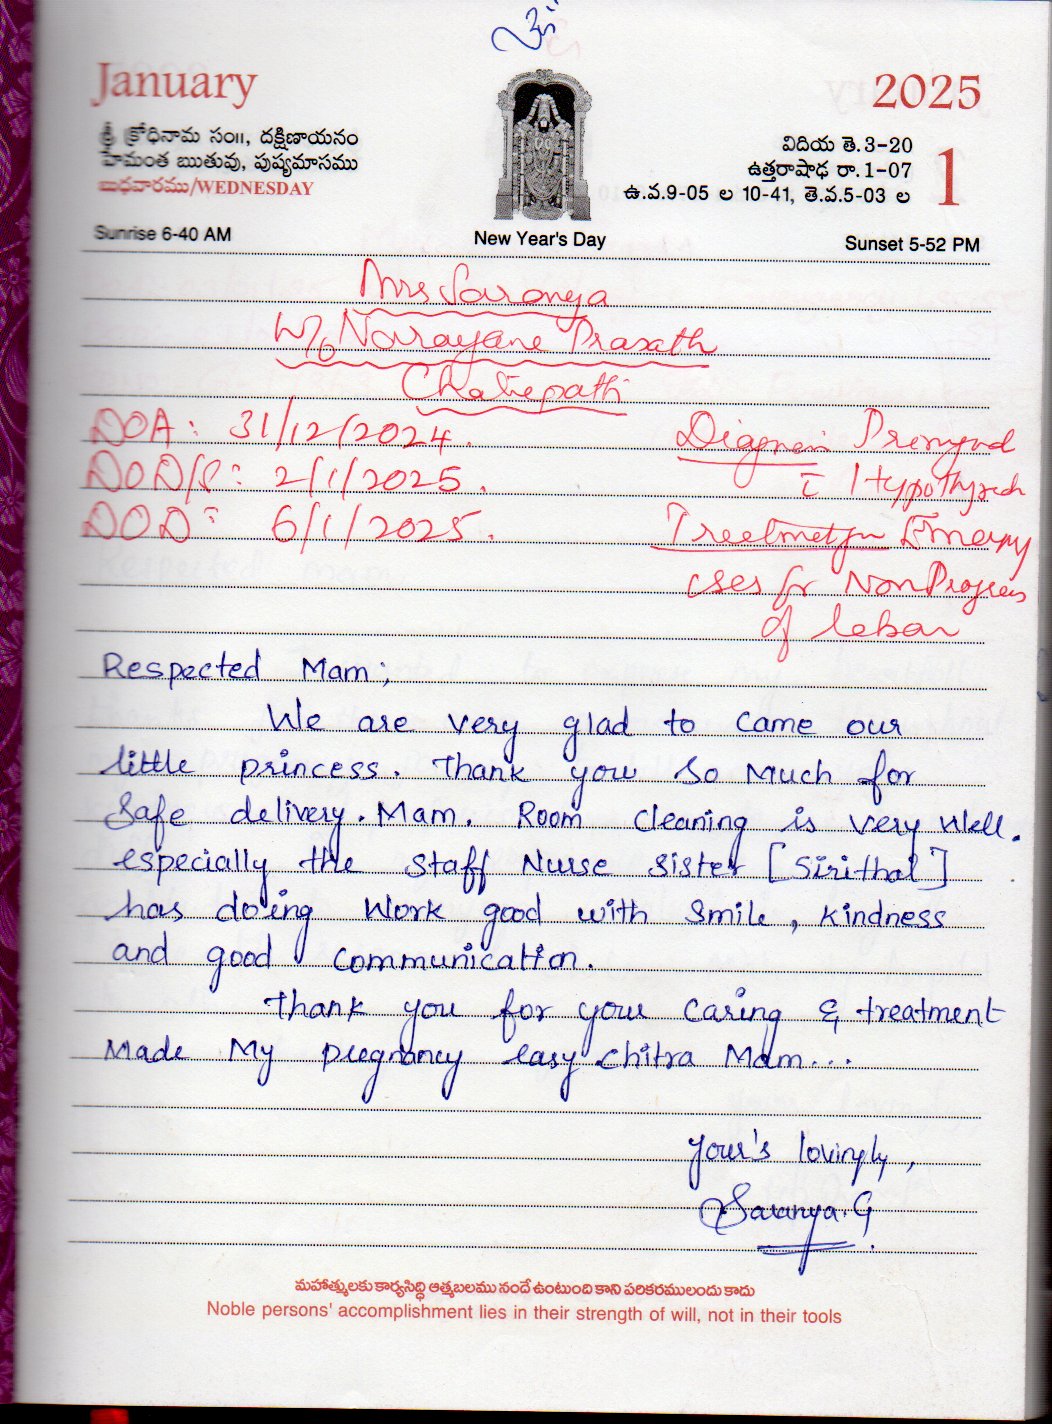 January
2025
శ్రీ క్రోధినామ సం॥, దక్షిణాయనం
హేమంత ఋతువు, పుష్యమాసము
బుధవారము/WEDNESDAY
విదియ తె.3-20
ఉత్తరాషాఢ రా.1-07
ఉ.వ.9-05 ల 10-41, తె.వ.5-03 ల
1
Sunrise 6-40 AM
New Year's Day
Sunset 5-52 PM
Mrs Saranya
W/o Narayane Prasath
DOA: 31/12/2024.
DOD/S: 2/1/2025.
DOD: 6/1/2025.
Hypothyroid
LSCS for Non Progress
of labar
Respected Mam;
We are very glad to came our
little princess. Thank you so Much for
Safe delivery. Mam. Room Cleaning is very Well.
especially the Staff Nurse Sister [Sirithal]
has doing Work good with Smile, kindness
and good communication.
Thank you for your Caring & treatment
Made My pregnancy easy Chitra Mam...
Your's lovingly,
Saranya.G
మహాత్ములకు కార్యసిద్ధి ఆత్మబలము నందే ఉంటుంది కాని పరికరములందు కాదు
Noble persons' accomplishment lies in their strength of will, not in their tools